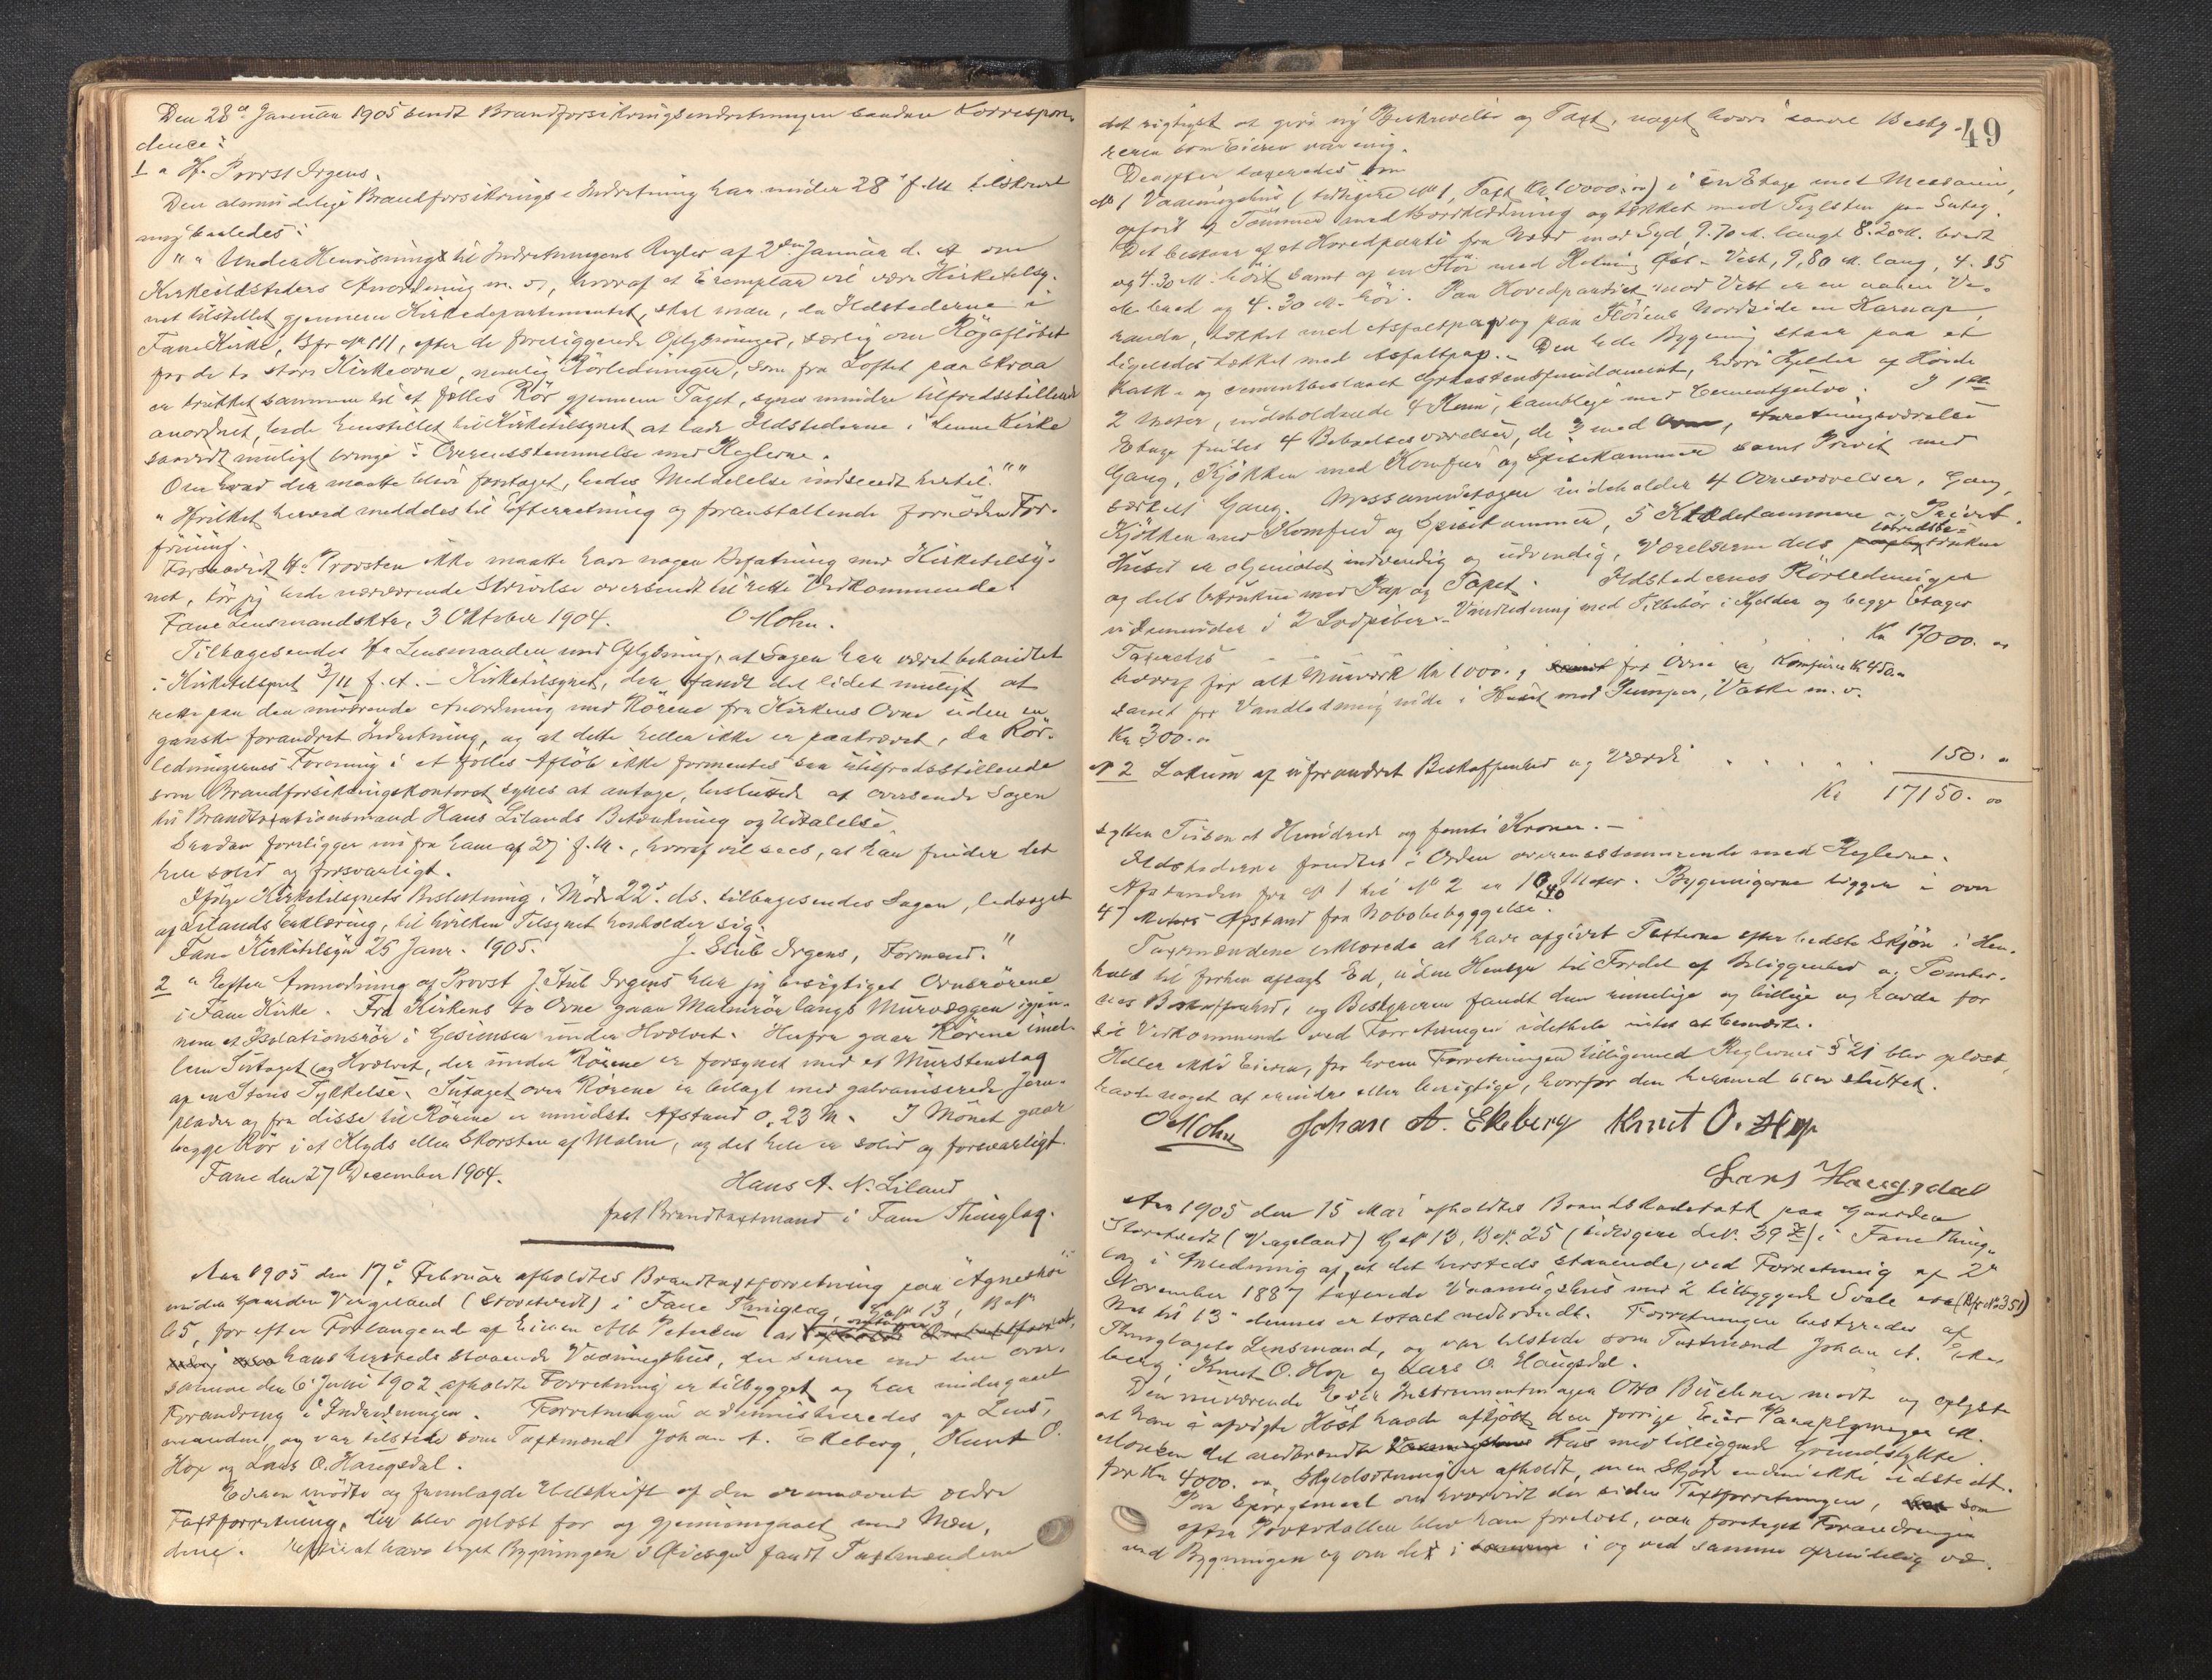 Den 28de Januar 1905 sendt Brandforsikringsindretningen saadan Korrespon-
dence:
1 " Hr. Provst Irgens.
Den almindelige Brandforsikrings-Indretning har under 28' f. M. tilskrevet
mig saaledes:
" " Under Henvisning til Indretningens Regler af 2den Januar d. A. om
Kirkeildsteders Anordning m. v., hvoraf et Exemplar vil være Kirketilsy-
net tilstillet gjennem Kirkedepartementet, skal man, da Ildstederne i
Fane Kirke, Bfr. № 111, efter de foreliggende Oplysninger, særlig om Rögaflöbet
for de to store Kirkeovne, nemlig Rörledningen, som fra Loftet paa Skraa
er trukket sammen til et fælles Rör gjennem Taget, synes mindre tilfredsstillende
anordnet, bede henstillet til Kirketilsynet at lade Ildstederne i denne Kirke
saavidt muligt bringe i Overensstemmelse med Reglerne.
Om hvad der maatte blive foretaget, bedes Meddelelse indsendt hertil." "
" Hvilket herved meddeles til Efterretning og foranstaltende fornöden For-
föining.
Forsaavidt Hr. Provsten ikke maatte have nogen Befatning med Kirketilsy-
net, tör jeg bede nærværende Skrivelse oversendt til rette Vedkommende.
Fane Lensmandsktr, 3 Oktober 1904. O Mohn.
Tilbagesendes Hr Lensmanden med Oplysning, at Sagen har været behandlet
i Kirketilsynet 3/11 f. A. – Kirketilsynet, der fandt det lidet muligt at
rette paa den nuværende Anordning med Rörene fra Kirkens Ovne uden en
ganske forandret Indretning, og at dette heller ikke er paakrævet, da Rör-
ledningernes Forening i et fælles Aflöb ikke formentes saa utilfredsstillende
som Brandforsikringskontoret synes at antage, besluttede at oversende Sagen
til Brandtaxtionsmand Hans Lilands Betænkning og Udtalelse.
Saadan foreligger nu fra ham af 27 f. M., hvoraf vil sees, at han finder det
hele solid og forsvarligt.
Ifölge Kirketilsynets Beslutning i Möde 22' ds. tilbagesendes Sagen, ledsaget
af Lilands Erklæring, til hvilken Tilsynet henholder sig.
Fane Kirketilsyn 25 Janr. 1905. J. Stub Irgens, Formand."
2 " Efter Anmodning af Provst J. Stub Irgens har jeg besigtiget Ovnsrörene
i Fane Kirke. Fra Kirkens to Ovne gaar Malmrör langs Murvæggen igjen-
nem et Isolationsrör i Gesimsen under Hvælvet. Herfra gaar Rörene imel-
lem Sutaget og Hvælvet, der under Rörene er forsynet med et Murstenslag
af en Stens Tykkelse. Sutaget over Rörene er belagt med galvaniserede Jern-
plader og fra disse til Rörene er mindste Afstand 0,23 M. I Mönet gaar
begge Rör i et Klyds eller Skorsten af Malm, og det hele er solid og forsvarligt.
Fane den 27 December 1904. Hans A. N. Liland
fast Brandtaxtmand i Fane Thinglag.
Aar 1905 den 17de Februar afholdtes Brandtaxtforretning paa "Agneshöi"
under Gaarden Vergeland (Storetvedt) i Fane Thinglag, G.№ 13, B.№
65, for efter Forlangende af Eieren Alb Petersen at omtaxere
hans hersteds staaende Vaaningshus, der senere end den over
samme den 6 Juni 1902 afholdte Forretning er tilbygget og har undergaaet
Forandring i Indredningen. Forretningen administreredes af Lens-
manden, og var tilstede som Taxtmænd Johan A. Ekeberg, Knut O.
Hop og Lars O. Haugsdal.
Eieren mödte og fremlagde Udskrift af den ovennævnte ældre
Taxtforretning, der blev oplæst for og gjennemgaaet med Mæn-
dene. Efter at have taget Bygningen i Öiesyn fandt Taxtmændene
49
det rigtigst at give ny Beskrivelse og Taxt, noget hvori saavel Besty-
reren som Eieren var enig.
Derefter taxeredes
№ 1 Vaaningshus (tidligere № 1, Taxt Kr. 10000.00) i én Etage med Messanin,
opfört af Tömmer med Bordklædning og tækket med Teglsten paa Sutag.
Det bestaar af et Hovedparti fra Nord mod Syd, 9.70 M. langt 8.20 M. bredt
og 4.30 M. höit samt af en Flöi med Retning Öst-Vest, 9,80 M. lang, 4.15
M. bred og 4.30 M. höi. Paa Hovedpartiet mod Vest er en aaben Ve-
randa, tækket med Asfaltpap og paa Flöiens Nordside en Karnap,
ligeledes tækket med Asfaltpap. Den hele Bygning staar paa et
Kalk- og cementbeslaaet Graastensfundament, hvori Kjelder af Höide
2 Meter, indeholdende 4 Rum, samtlige med Cementgulve. I 1ste
Etage findes 4 Beboelsesværelser, de 3 med , Anretningsværelse
Gang, Kjökken med Komfur og Spisekammer samt Privet med
særskilt Gang. Messaninetagen indeholder 4 Ovnsværelser, Gang,
Kjökken med Komfur og Spisekammer, 5 Klædekammere og Privet.
Huset er oljemalet indvendig og udvendig, Værelserne dels lærredsbe-
trukne
og dels betrukne med Pap og Tapet. Ildstedernes Rörledninger
udmunder i 2 Lodpiber. Vandledning med Tilbehör i Kjelder og begge Etager
Taxeredes Kr 17000.00
hvoraf for alt Murværk Kr 1000., for Ovne og Komfurer Kr 450.00
samt for Vandledning inde i Huset med Pumper, Vaske m. v.
Kr 300.00
№ 2 Lokum af uforandret Beskaffenhed og Værdi . . . . . 150.00
Kr 17150.00
sytten Tusen et Hundrede og femti Kroner. –
Ildstederne fandtes i Orden overensstemmende med Reglerne.
Afstanden fra № 1 til № 2 er 10,40 Meter. Bygningerne ligger i over
47 Meters Afstand fra Nabobebyggelse.
Taxtmændene erklærede at have afgivet Taxterne efter bedste Skjön i Hen-
hold til forhen aflagt Ed, uden Hensyn til Fordel af Beliggenhed og Tomter-
nes Beskaffenhed, og Bestyreren fandt dem rimelige og billige og havde for
sit Vedkommende ved Forretningen idethele intet at bemærke.
Heller ikke Eieren, for hvem Forretningen tilligemed Reglernes § 21 blev oplæst,
havde noget at erindre eller berigtige, hvorfor den hermed blev sluttet.
O Mohn Johan A. Ekeberg Knut O. Hop
Lars Haugsdal
Aar 1905 den 15 Mai afholdtes Brandskadetaxt paa Gaarden
Storetvedt (Vergeland) G.№ 13, B.№ 25 (tidligere L.№ 39 z) i Fane Thing-
lag i Anledning af, at det hersteds staaende, ved Forretning af 2'
November 1887 taxerede Vaaningshus med 2 tilbyggede Svale (Bfr. № 351)
Nat til 13' dennes er totalt nedbrændt. Forretningen bestyredes af
Thinglagets Lensmand, og var tilstede som Taxtmænd Johan A. Eke-
berg, Knut O. Hop og Lars O. Haugsdal.
Den nuværende Eier Instrumentmager Otto Büchner mödte og oplyste
at han i afvigte Höst havde afkjöbt den forrige Eier Paraplymager M.
Monsen det nedbrændte Hus med tilliggende Grundstykke
for Kr 4000.00. Skyldsætning er afholdt, men Skjöde endnu ikke udstedt.
Paa Spörgsmaal om hvorvidt der siden Taxtforretningen, som
efter Protokollen blev ham forelæst, var foretaget Forandringer
ved Bygningen og om det i og ved samme oprindelig væ-